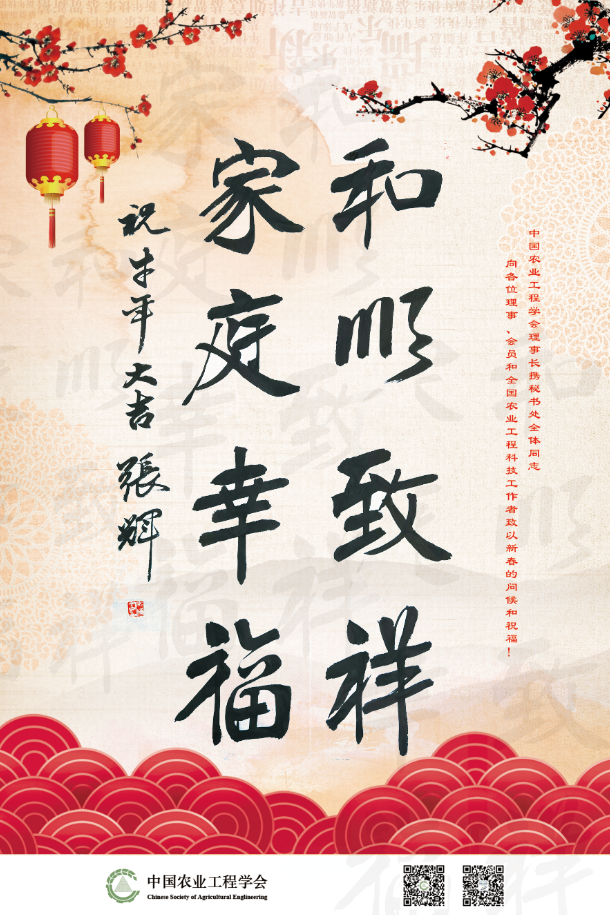 中国农业工程学会理事长携秘书处全体同志
向各位理事、会员和全国农业工程科技工作者致以新春的问候和祝福！
和顺致祥
家庭幸福
祝牛年大吉 張輝
中国农业工程学会
Chinese Society of Agricultural Engineering